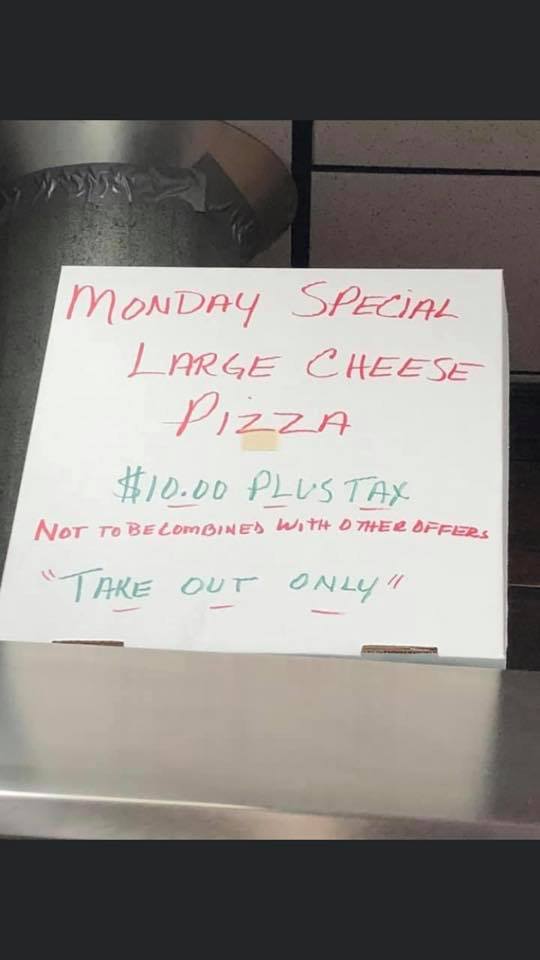 MONDAY SPECIAL
LARGE CHEESE
PIZZA
$10.00 PLUS TAX
NOT TO BE COMBINED WITH OTHER OFFERS
"TAKE OUT ONLY"